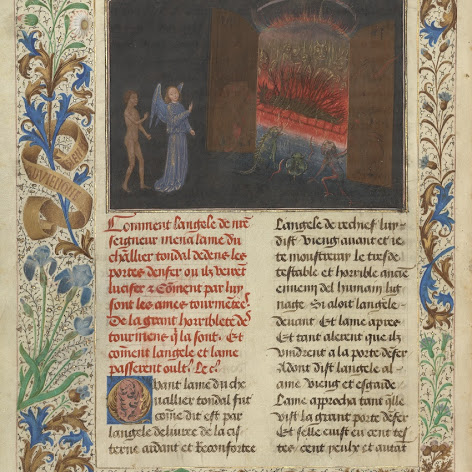 Comment langele de nr̄e
seigneur mena lame du
chl̄lier tondal dedens les
portes denfer ou ilz veirēt
lucifer & cōment par luy
sont les ames tourmētez
De la grant horriblete de
tourmens q̄ la sont. Et
cōment langele et lame
passerent oult̄.
Quant lame du che
uallier tondal fut
cōme dit est par
langele deliure de la cis
terne aidant et reconfortee
Langele de rechief luy
dist Vieng auant et ie
te monstreray le tres de
testable et horrible ancie
ennemi del humain lig
nage Si aloit langele
deuant Et lame apres
Et tant alerent que ilz
vindrent a la porte defer
Adont dist langele al
ame Vieng et esgarde
Lame approcha tant q̄lle
vist la grant porte defer
Et selle euist eu cent tes
tes cent peulx et autāt